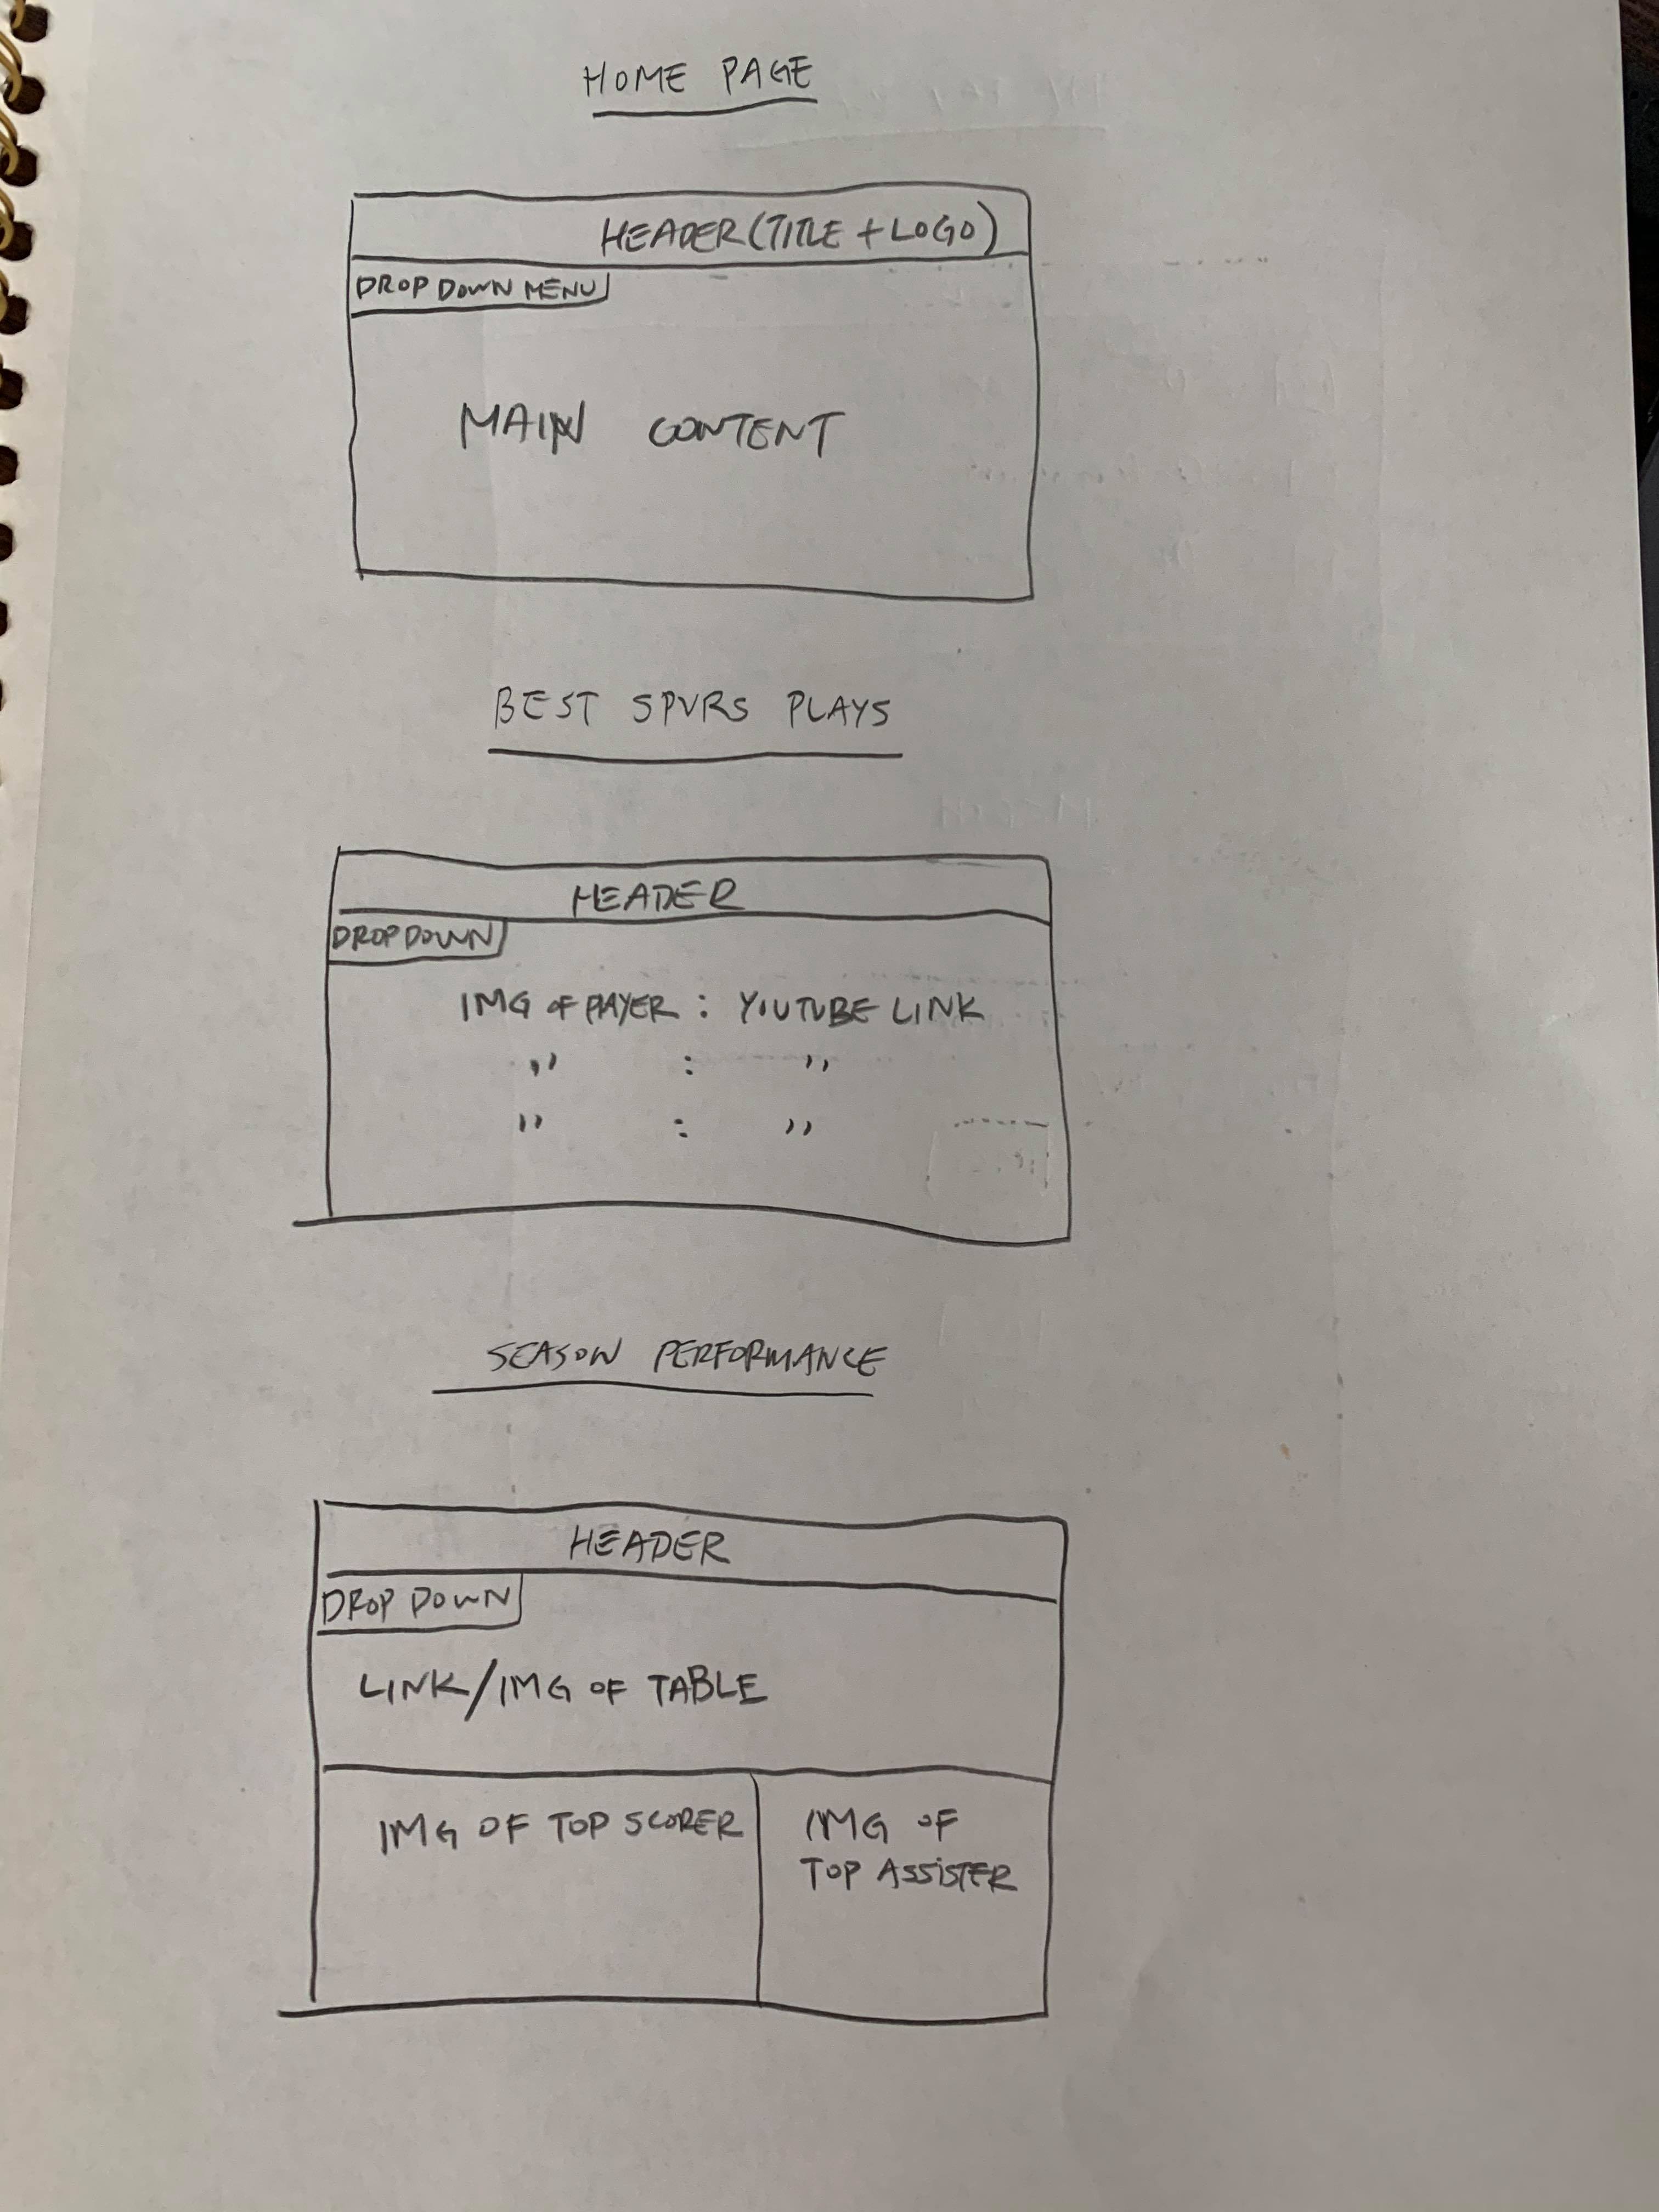 HOME PAGE
HEADER (TITLE + LOGO)
DROP DOWN MENU
MAIN CONTENT
BEST SPURS PLAYS
HEADER
DROPDOWN
IMG OF PLAYER : YOUTUBE LINK
" : "
" : "
SEASON PERFORMANCE
HEADER
DROP DOWN
LINK/IMG OF TABLE
IMG OF TOP SCORER
IMG OF
TOP ASSISTER